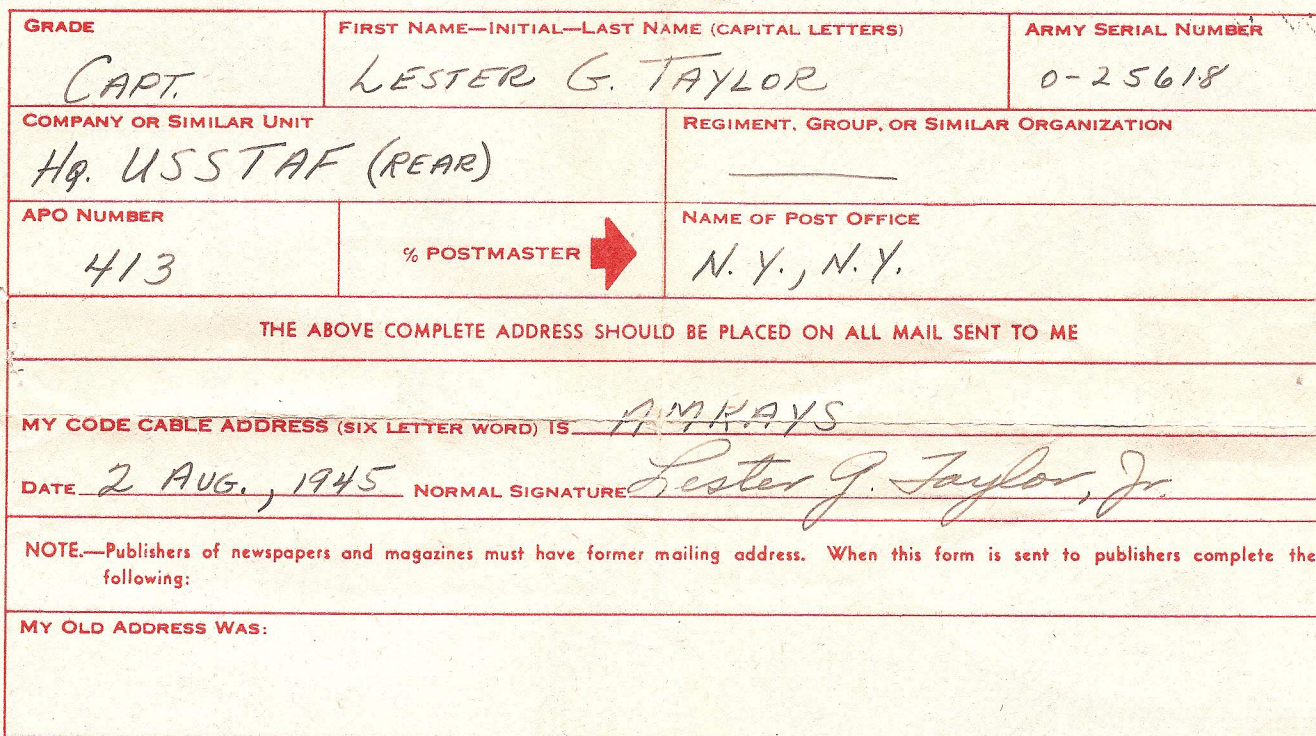 GRADE FIRST NAME—INITIAL—LAST NAME (CAPITAL LETTERS) ARMY SERIAL NUMBER
CAPT. LESTER G. TAYLOR O-25618
COMPANY OR SIMILAR UNIT REGIMENT, GROUP, OR SIMILAR ORGANIZATION
Hq. USSTAF (REAR)
APO NUMBER % POSTMASTER NAME OF POST OFFICE
413 N.Y., N.Y.
THE ABOVE COMPLETE ADDRESS SHOULD BE PLACED ON ALL MAIL SENT TO ME
MY CODE CABLE ADDRESS (SIX LETTER WORD) IS AMKAYS
DATE 2 AUG., 1945 NORMAL SIGNATURE Lester G. Taylor, Jr.
NOTE.—Publishers of newspapers and magazines must have former mailing address. When this form is sent to publishers complete the
following:
MY OLD ADDRESS WAS: